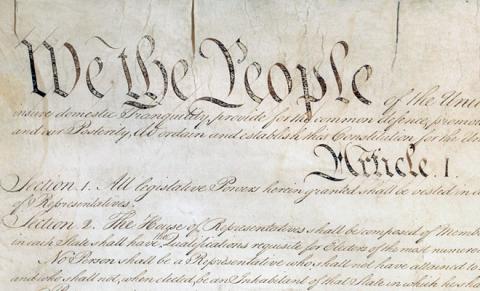 We the People of the Unit
insure domestic Tranquility, provide for the common defence, promot
and our Posterity, do ordain and establish this Constitution for the Unit
Article. I.
Section. 1. All legislative Powers herein granted shall be vested in a
of Representatives.
Section. 2. The House of Representatives shall be composed of Memb
in each State shall have the Qualifications requisite for Electors of the most numerou
No Person shall be a Representative who shall not have attained to
and who shall not, when elected, be an Inhabitant of that State in which he sha